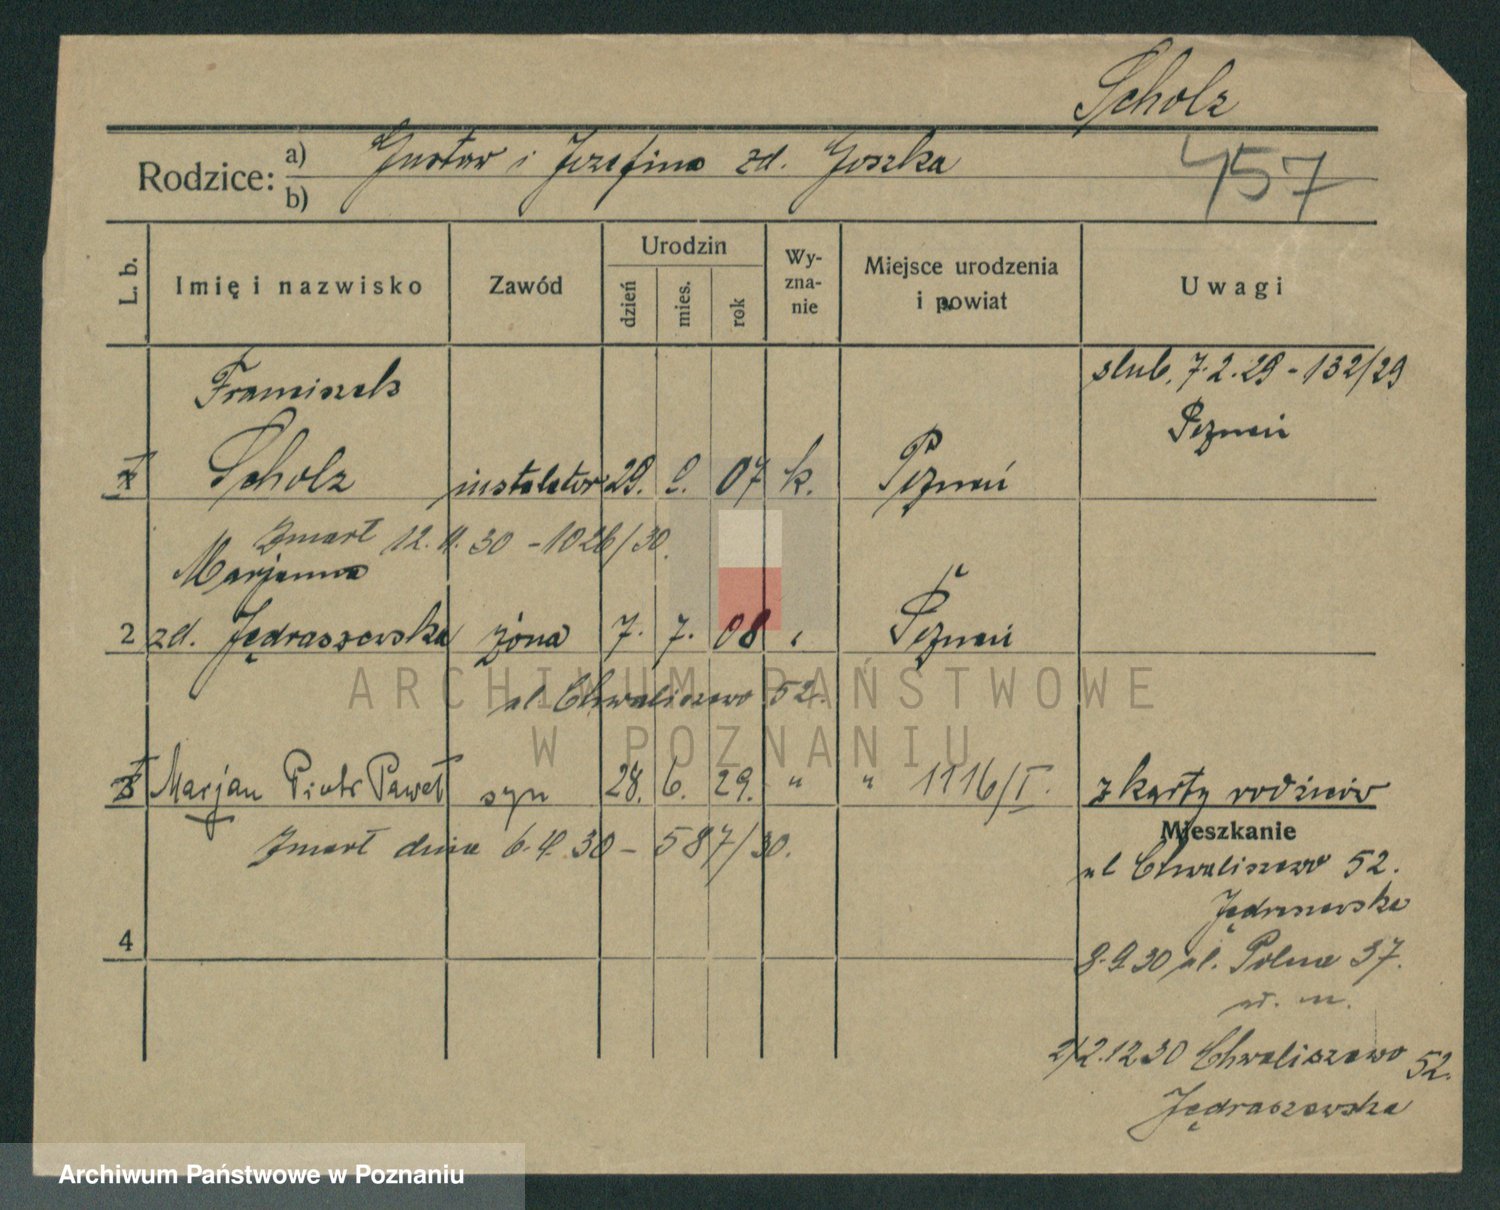 Scholz
Rodzice: a) Gustaw i Józefina zd. Goszka
b)
457
L. b. Imię i nazwisko Zawód Urodzin dzień mies. rok Wyznanie Miejsce urodzenia i powiat Uwagi
Franciszek
ślub. 7.2.29 - 132/29
Poznań
1 Scholz instalator 29. 9. 07 k. Poznań
Zmarł 12.11.30 - 1026/30.
Marjanna
2 zd. Jędraszewska żona 7. 7. 08 Poznań
ul. Chwaliszewo 52.
ARCHIWUM PAŃSTWOWE
W POZNANIU
3 Marjan Piotr Paweł syn 28. 6. 29. " " 1116/I. z karty rodziców
Zmarł dnia 6.4.30 - 587/30.
Mieszkanie
ul Chwaliszewo 52.
Jędraszewska
4
8.9.30 ul. Polna 37.
2.12.30 Chwaliszewo 52.
Jędraszewska
Archiwum Państwowe w Poznaniu